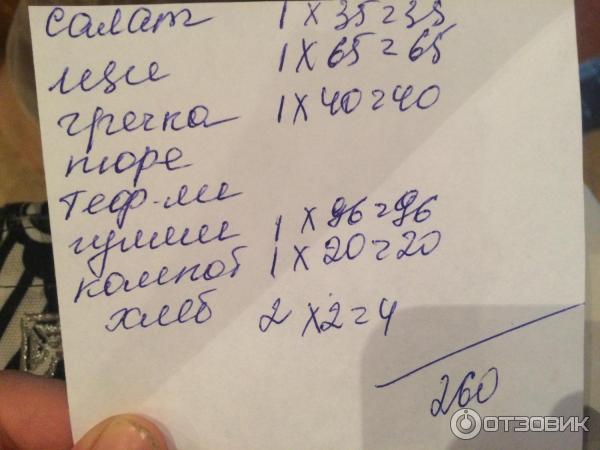 салат 1 х 35=35
щи 1 х 65=65
гречка 1 х 40=40
пюре
теф-ли
гуляш 1 х 96=96
компот 1 х 20=20
хлеб 2 х 2=4
260
ОТЗОВИК